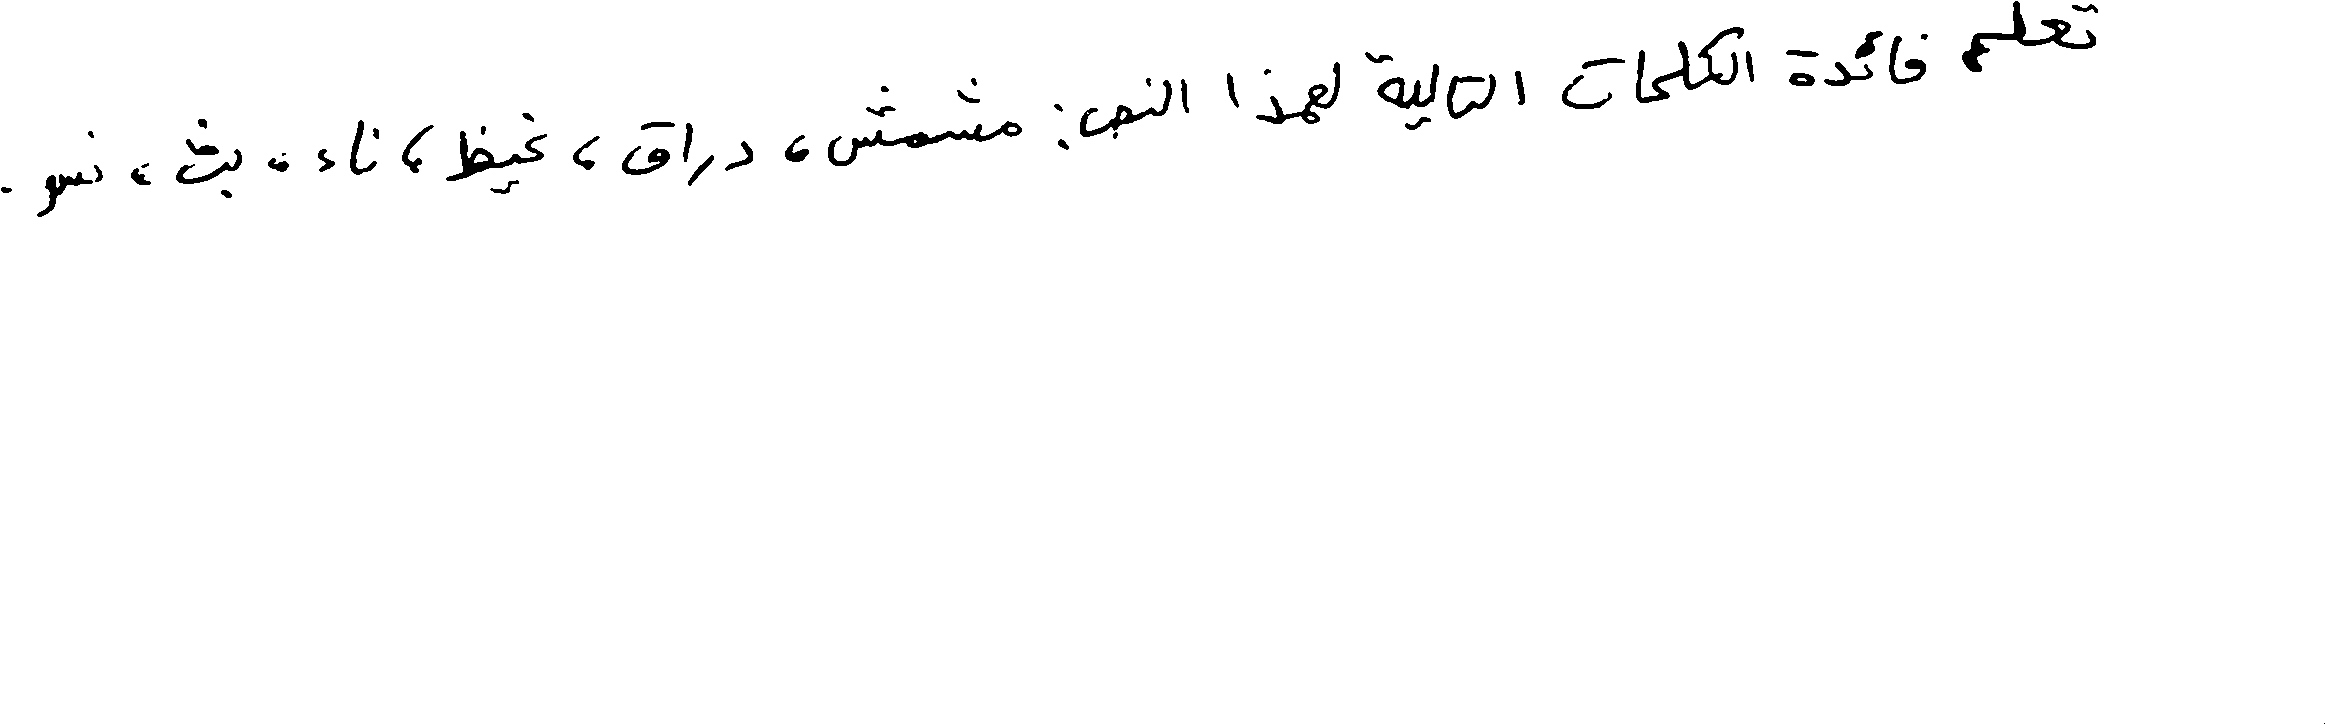 تعلم فائدة الكلمات التالية لهذا النص: مشمش، دراق، غيظ، ناء، بث، نسو.